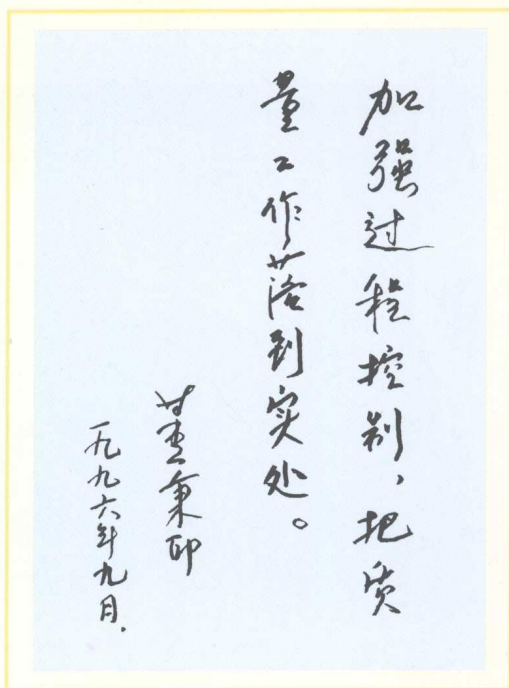 加强过程控制，把质
量工作落到实处。
董秉印
一九九六年九月.